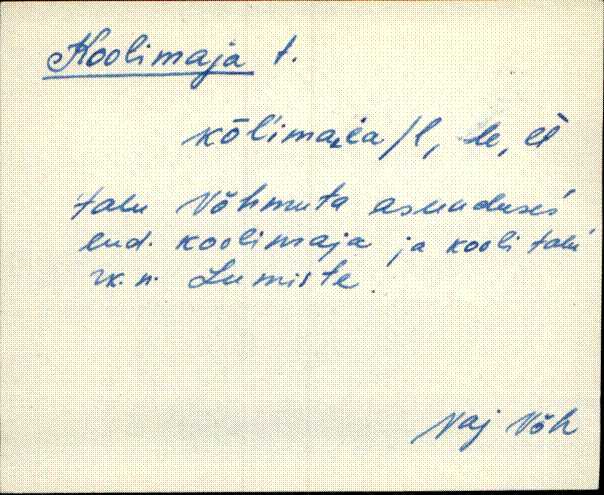 Koolimaja t.
kōĺima͔i̯a/l, le, lt
talu Võhmuta asunduses
end. koolimaja ja kooli talu
rk. n. Lumiste.
Vaj Võh